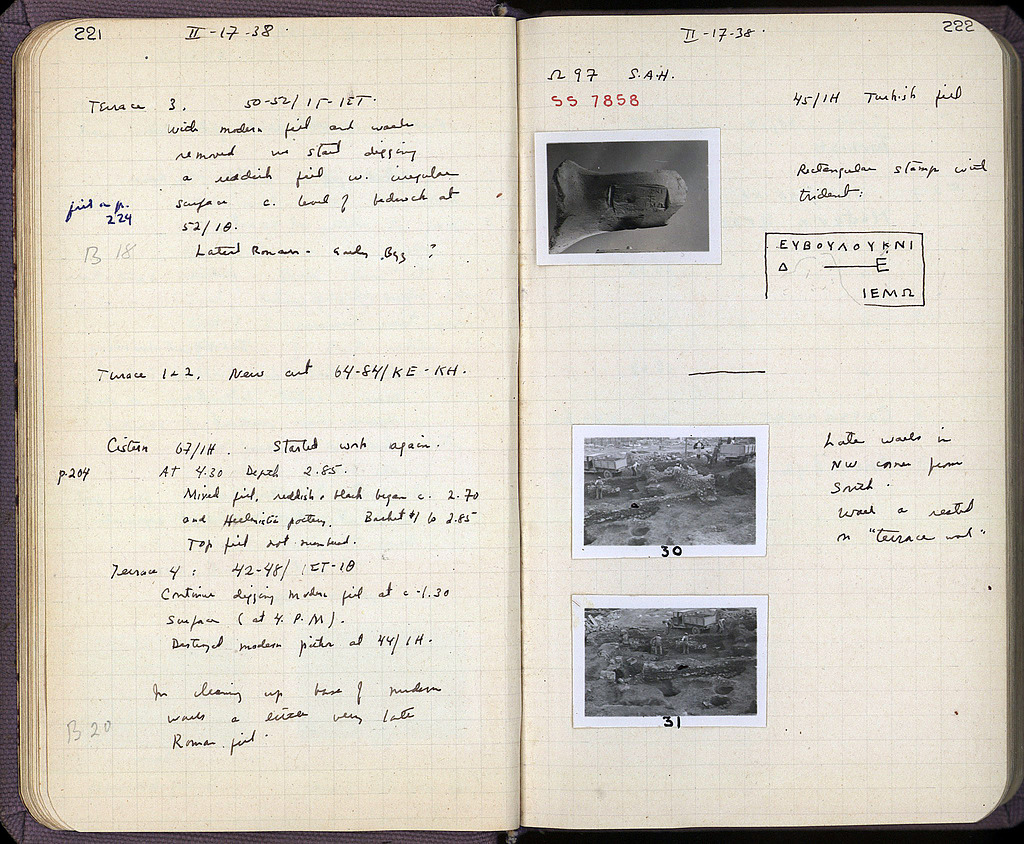 221
II-17-38.
Terrace 3. 50-52/ ΙΓ-ΙΣΤ.
With modern fill and walls
removed we start digging
a reddish fill w. irregular
surface c. level of bedrock at
fill on p.
224
52/ΙΘ.
B 18
Later Roman - Early Byz ?
Terrace 1+2. New cut 64-84/ΚΕ-ΚΗ.
Cistern 67/ΙΗ. Started work again.
p.204
At 4.30 Depth 2.85.
Mixed fill, reddish + black began c. 2.70
and Hellenistic pottery. Basket #1 to 2.85
Top fill not numbered.
Terrace 4: 42-48/ ΙΣΤ-ΙΘ
Continue digging modern fill at c -1.30
surface (at 4. P.M).
Destroyed modern pithos at 44/ΙΗ.
In cleaning up base of modern
walls a very late
B 20
Roman fill.
II-17-38.
222
Ω 97 S.A.H.
SS 7858
45/ΙΗ Turkish fill
Rectangular stamp with
trident:
ΕΥΒΟΥΛΟΥΚΝΙ
Δ Ε
ΙΕΜΩ
Late walls in
NW corner from
South.
Wall a rested
on "terrace wall"
30
31